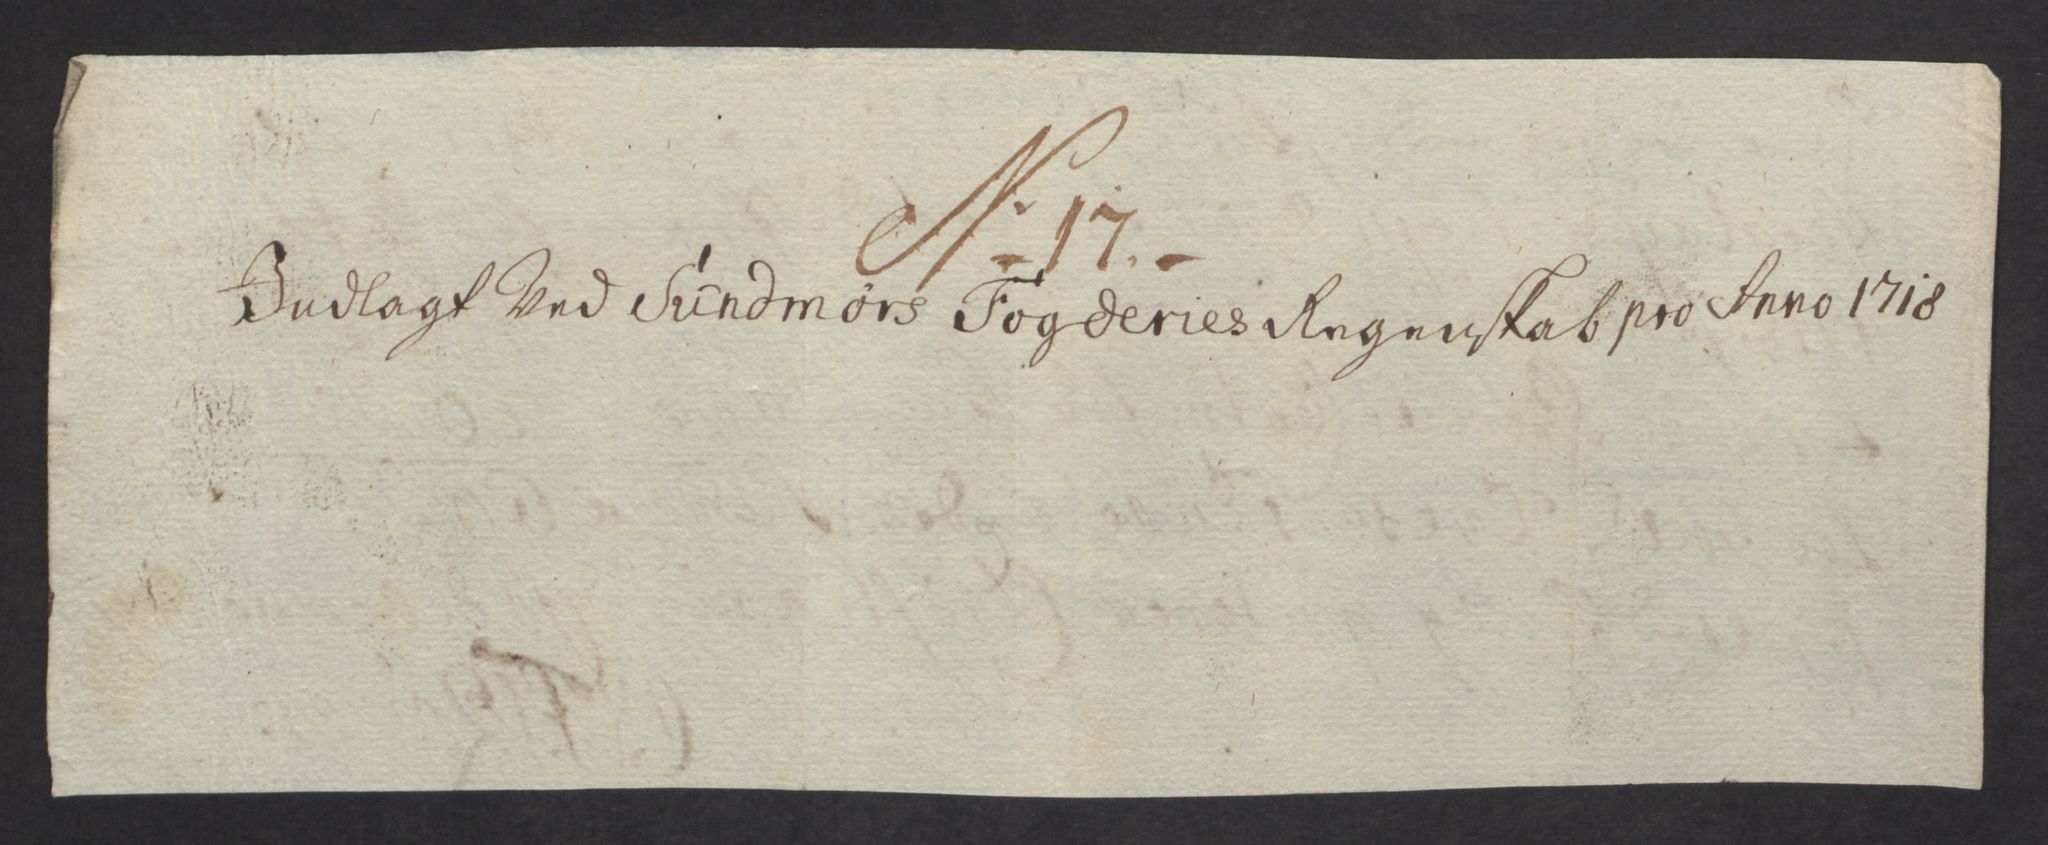 Nr 17.
Indlagt Ved Sundmørs Fogderies Regenskab pro Anno 1718